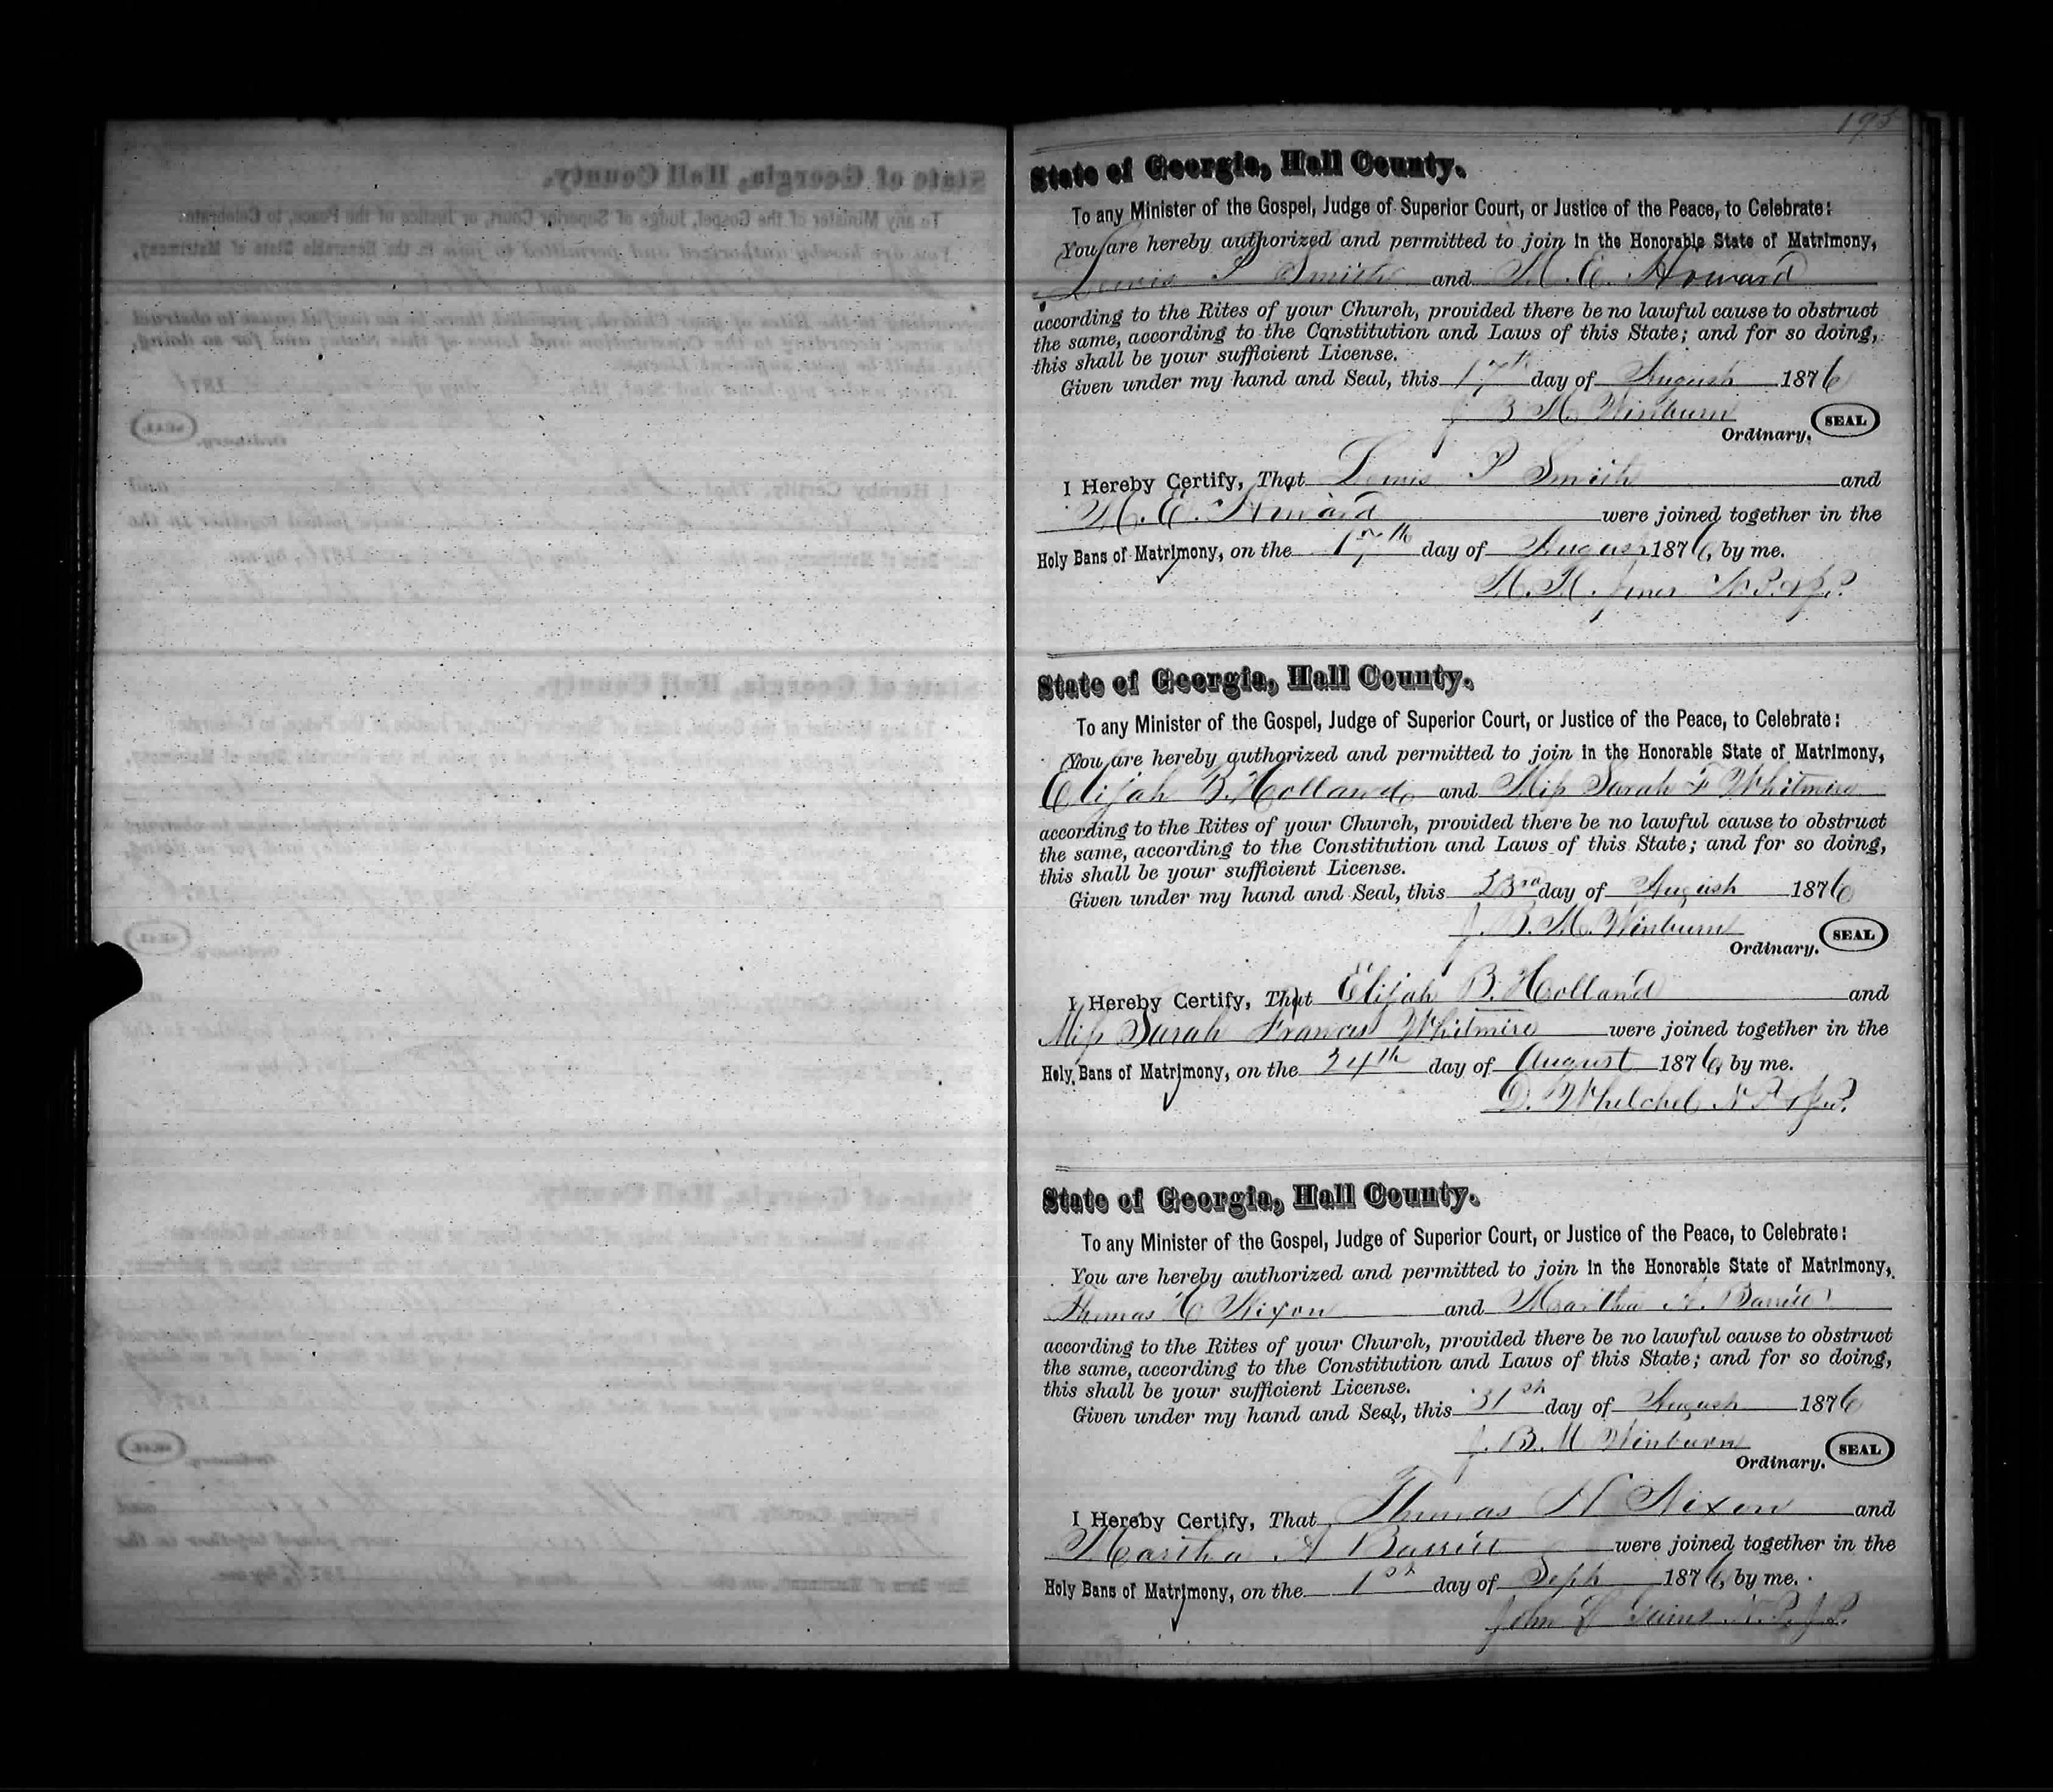 195
State of Georgia, Hall County.
To any Minister of the Gospel, Judge of Superior Court, or Justice of the Peace, to Celebrate:
You are hereby authorized and permitted to join in the Honorable State of Matrimony,
Lewis P Smith and M. E. Howard
according to the Rites of your Church, provided there be no lawful cause to obstruct
the same, according to the Constitution and Laws of this State; and for so doing,
this shall be your sufficient License.
Given under my hand and Seal, this 17th day of August 1876
J. B. M. Winburn
Ordinary. SEAL
I Hereby Certify, That Lewis P Smith and
M. E. Howard were joined together in the
Holy Bans of Matrimony, on the 17th day of August 1876, by me.
M. M. Jones N.P. & J.P.
State of Georgia, Hall County.
To any Minister of the Gospel, Judge of Superior Court, or Justice of the Peace, to Celebrate:
You are hereby authorized and permitted to join in the Honorable State of Matrimony,
Elijah B. Holland and Miss Sarah F Whitmire
according to the Rites of your Church, provided there be no lawful cause to obstruct
the same, according to the Constitution and Laws of this State; and for so doing,
this shall be your sufficient License.
Given under my hand and Seal, this 23rd day of August 1876
J. B. M. Winburn
Ordinary. SEAL
I Hereby Certify, That Elijah B. Holland and
Miss Sarah Frances Whitmire were joined together in the
Holy Bans of Matrimony, on the 24th day of August 1876, by me.
D. Whelchel N.P. & J.P.
State of Georgia, Hall County.
To any Minister of the Gospel, Judge of Superior Court, or Justice of the Peace, to Celebrate:
You are hereby authorized and permitted to join in the Honorable State of Matrimony,
Thomas H Nixon and Martha A. Barrett
according to the Rites of your Church, provided there be no lawful cause to obstruct
the same, according to the Constitution and Laws of this State; and for so doing,
this shall be your sufficient License.
Given under my hand and Seal, this 31st day of August 1876
J. B. M Winburn
Ordinary. SEAL
I Hereby Certify, That Thomas H Nixon and
Martha A Barrett were joined together in the
Holy Bans of Matrimony, on the 1st day of Sept 1876, by me.
John E Gaines N.P. J.P.